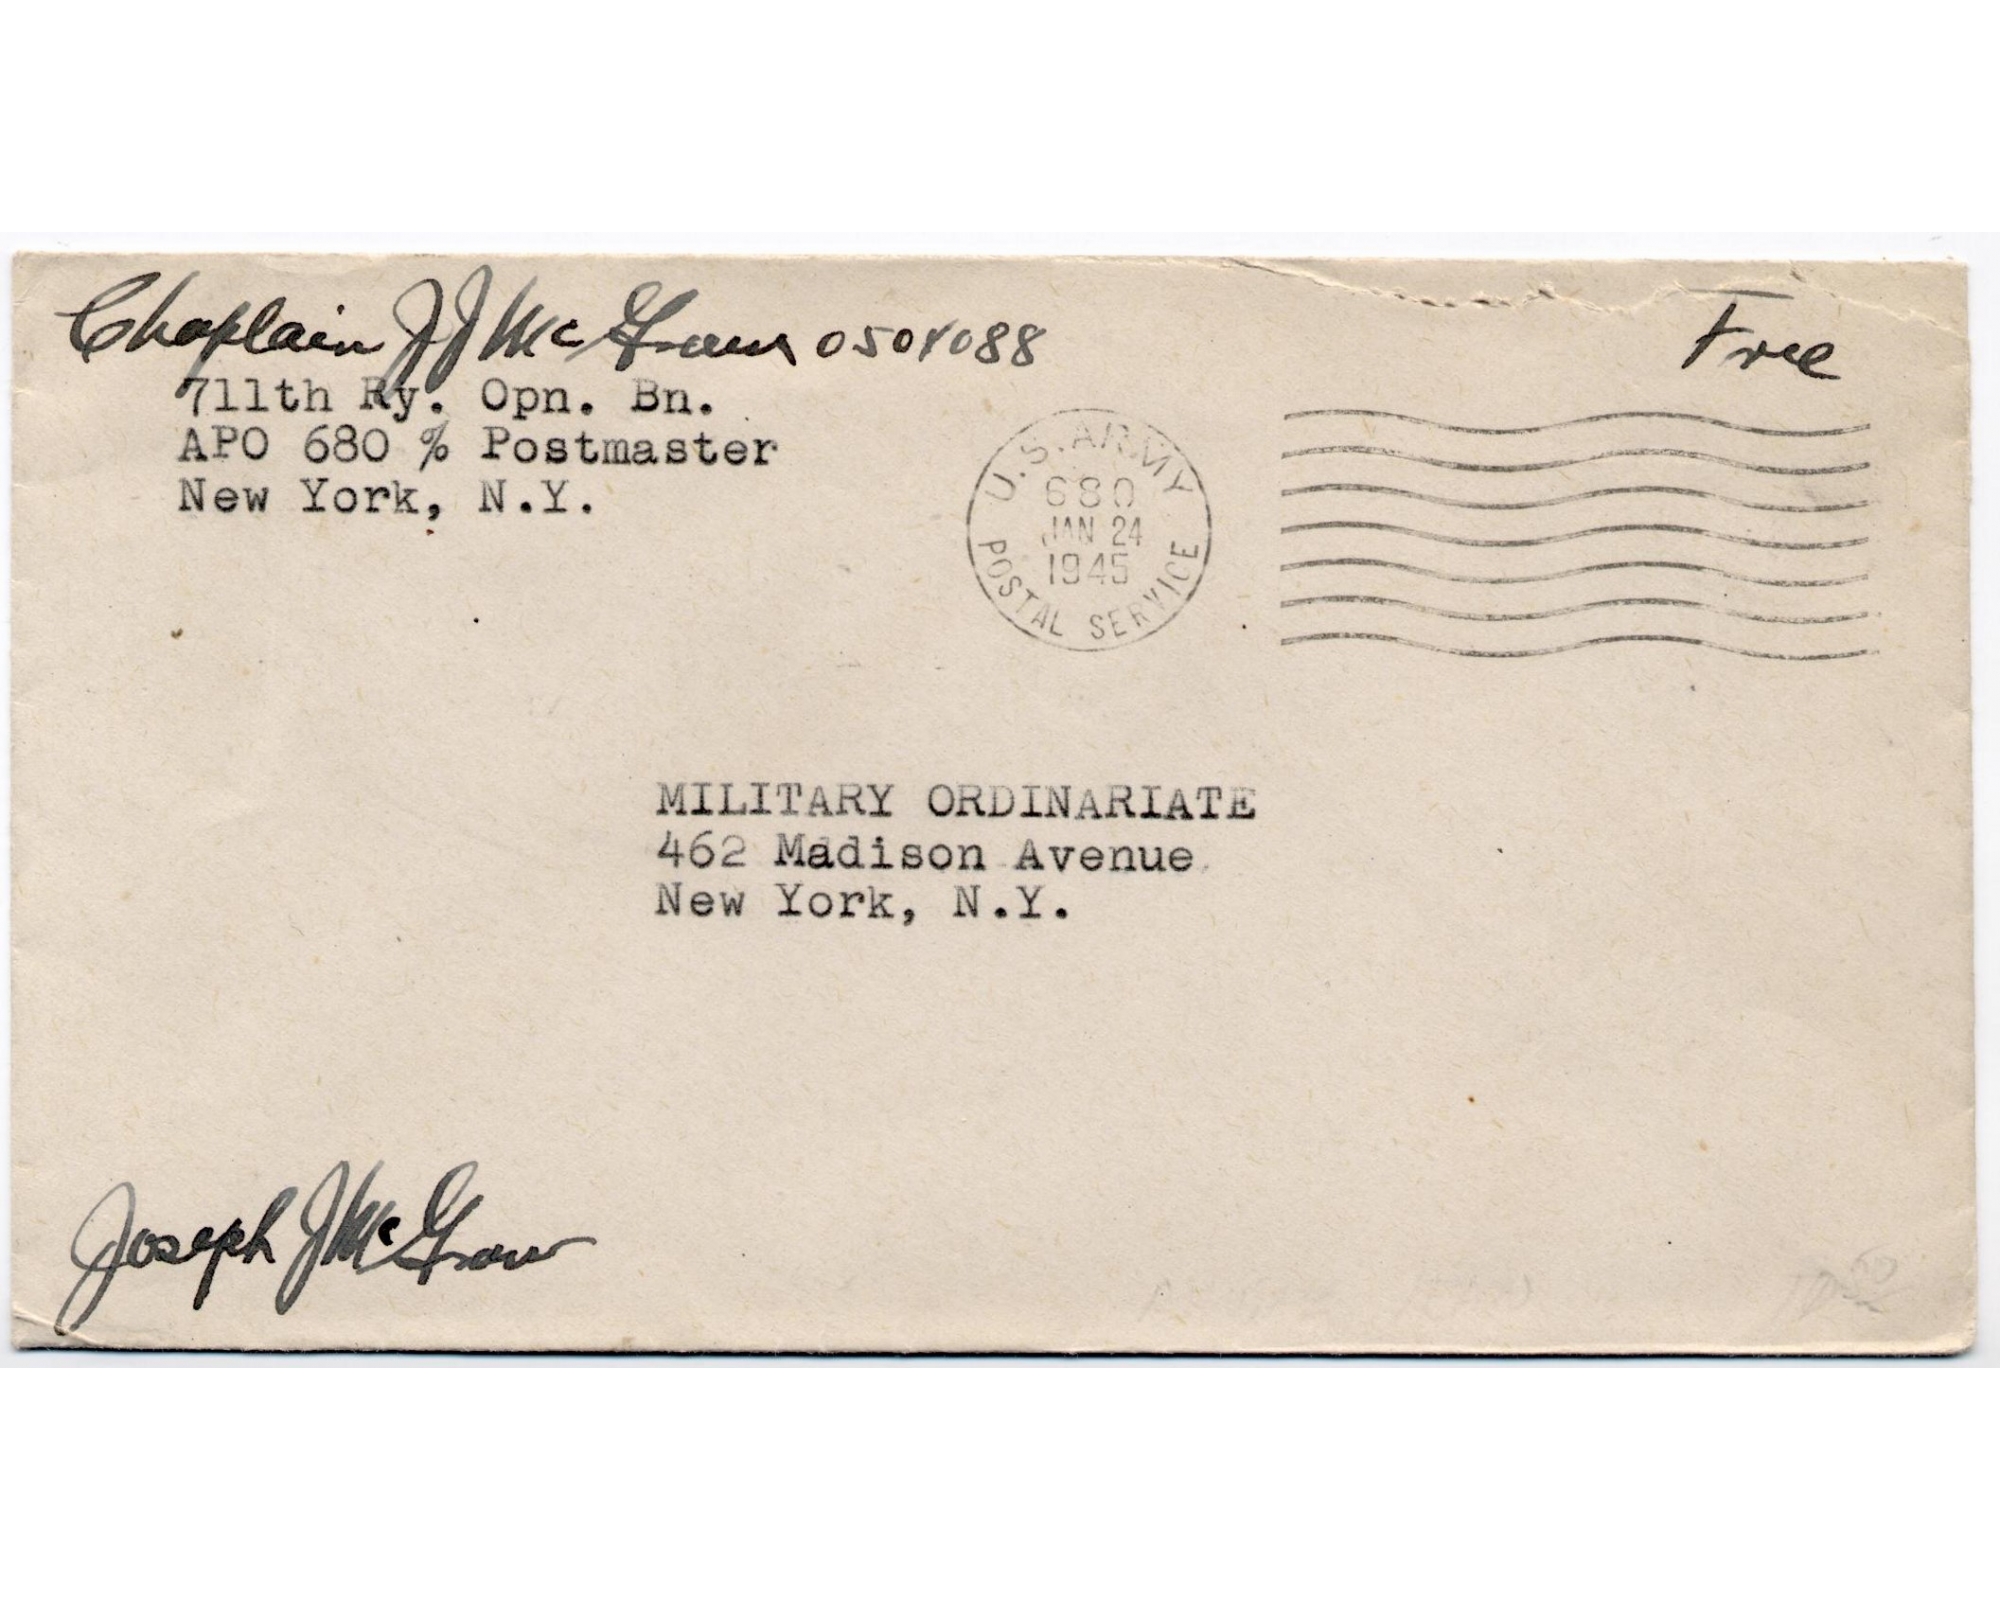 Chaplain J J McGraw 0504088
Free
711th Ry. Opn. Bn.
APO 680 % Postmaster
New York, N.Y.
U.S. ARMY
680
JAN 24
1945
POSTAL SERVICE
MILITARY ORDINARIATE
462 Madison Avenue
New York, N.Y.
Joseph J McGraw